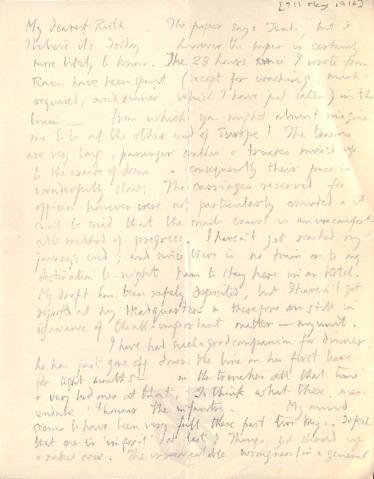 [?11 May 1916]
My dearest Ruth The paper says Tues, but I
believe it's Friday however the paper is certainly
more likely to know. The 23 hours since I wrote from
Rouen have been spent (except for washing, much
required, and dinner which I have just eaten) in the
train — from which you might almost imagine
me to be at the other end of Europe! The trains
are very long, passenger coaches & trucks mixed up
to the extent of &
consequently their pace is
wonderfully slow. The carriages reserved for
officers however were not particularly crowded & it
can't be said that the snail's crawl is an uncomfort-
able method of progress. I haven't yet reached my
journey's end, and since there is no train on to my
destination to-night I am to stay here in an hotel.
My draft has been safely deposited, but I haven't yet
reported at my Headquarters & therefore am still in
ignorance of the all-important matter — my unit.
I have had such a good companion for dinner;
he has just gone off down the line on his first leave
for eight months — in the trenches all that time
& very bad ones at that. To think what these men
endure! I honour the infantry. My mind
seems to have been very full these past two days. I feel
that one is 'in for it' at last; things get stirred up
& raked over. The irremediable wrongness in a general